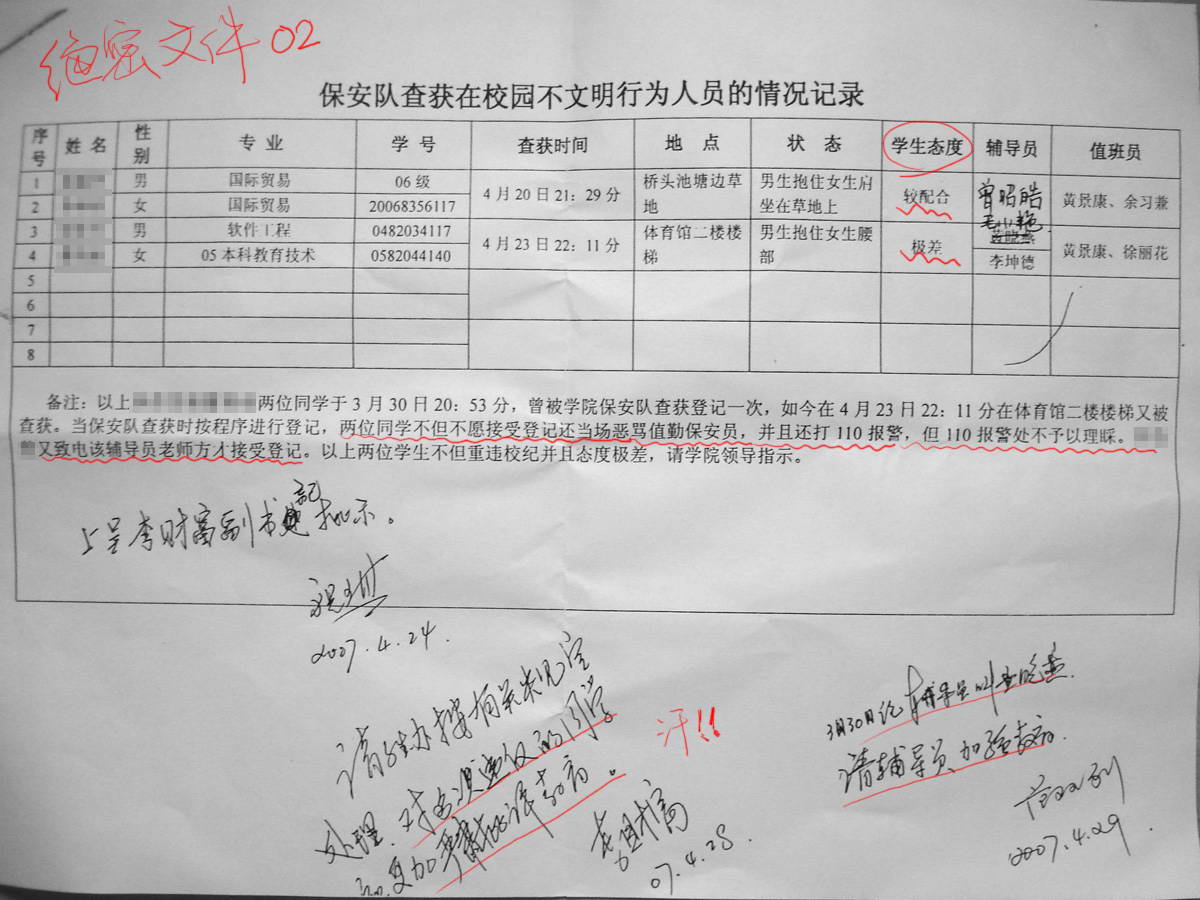 绝密文件02
保安队查获在校园不文明行为人员的情况记录
序号 姓名 性别 专业 学号 查获时间 地点 状态 学生态度 辅导员 值班员
1 男 国际贸易 06级 4月20日21：29分 桥头池塘边草地 男生抱住女生肩坐在草地上 较配合 曾昭皓 黄景康、余习兼
2 女 国际贸易 20068356117
3 男 软件工程 0482034117 4月23日22：11分 体育馆二楼楼梯 男生抱住女生腰部 极差 黄晓燕 黄景康、徐丽花
4 女 05本科教育技术 0582044140 李坤德
5
6
7
8
备注：以上 两位同学于3月30日20：53分，曾被学院保安队查获登记一次，如今在4月23日22：11分在体育馆二楼楼梯又被
查获。当保安队查获时按程序进行登记，两位同学不但不愿接受登记还当场恶骂值勤保安员，并且还打110报警，但110报警处不予以理睬。
又致电该辅导员老师方才接受登记。以上两位学生不但重违校纪并且态度极差，请学院领导指示。
上呈李财富副书记批示。
2007.4.24.
请 办按有关规定
处理，对 的同学
要加严肃批评教育。
李财富
07.4.28.
汗!!
3月30日 辅导员叫
请辅导员加强教育.
2007.4.29.